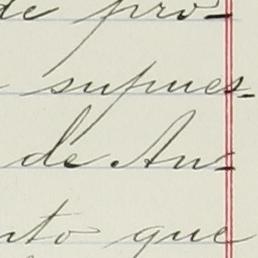 de pro-
supues-
de An-
nto que